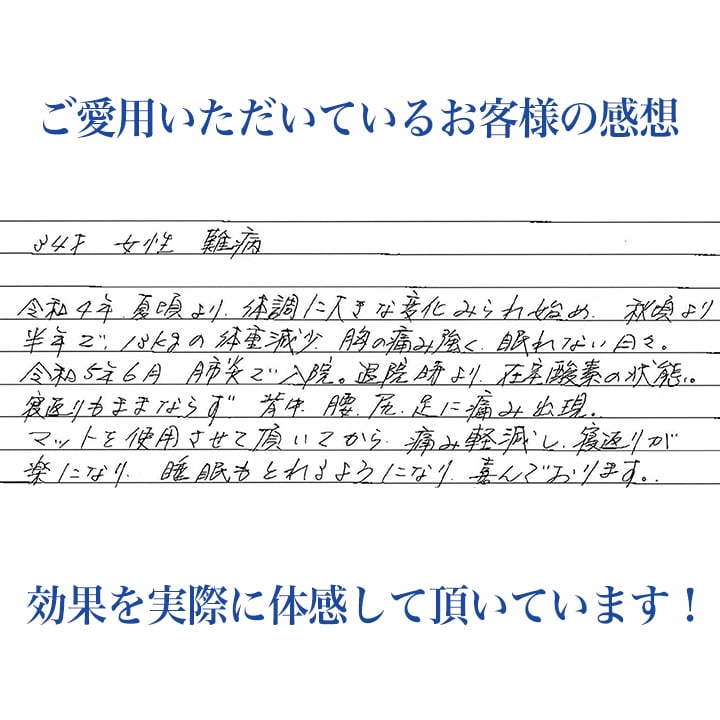 ご愛用いただいているお客様の感想
84才 女性 難病
令和4年.夏頃より.体調に大きな変化みられ始め. 秋頃より
半年で.13kgの体重減少.胸の痛み強く.眠れない日々。
令和5年6月 肺炎で入院。退院時より.在宅酸素の状態。
寝返りもままならず 背中.腰.尻.足に痛み出現。
マットを使用させて頂いてから.痛み軽減し.寝返りが
楽になり. 睡眠もとれるようになり.喜んでおります。
効果を実際に体感して頂いています！